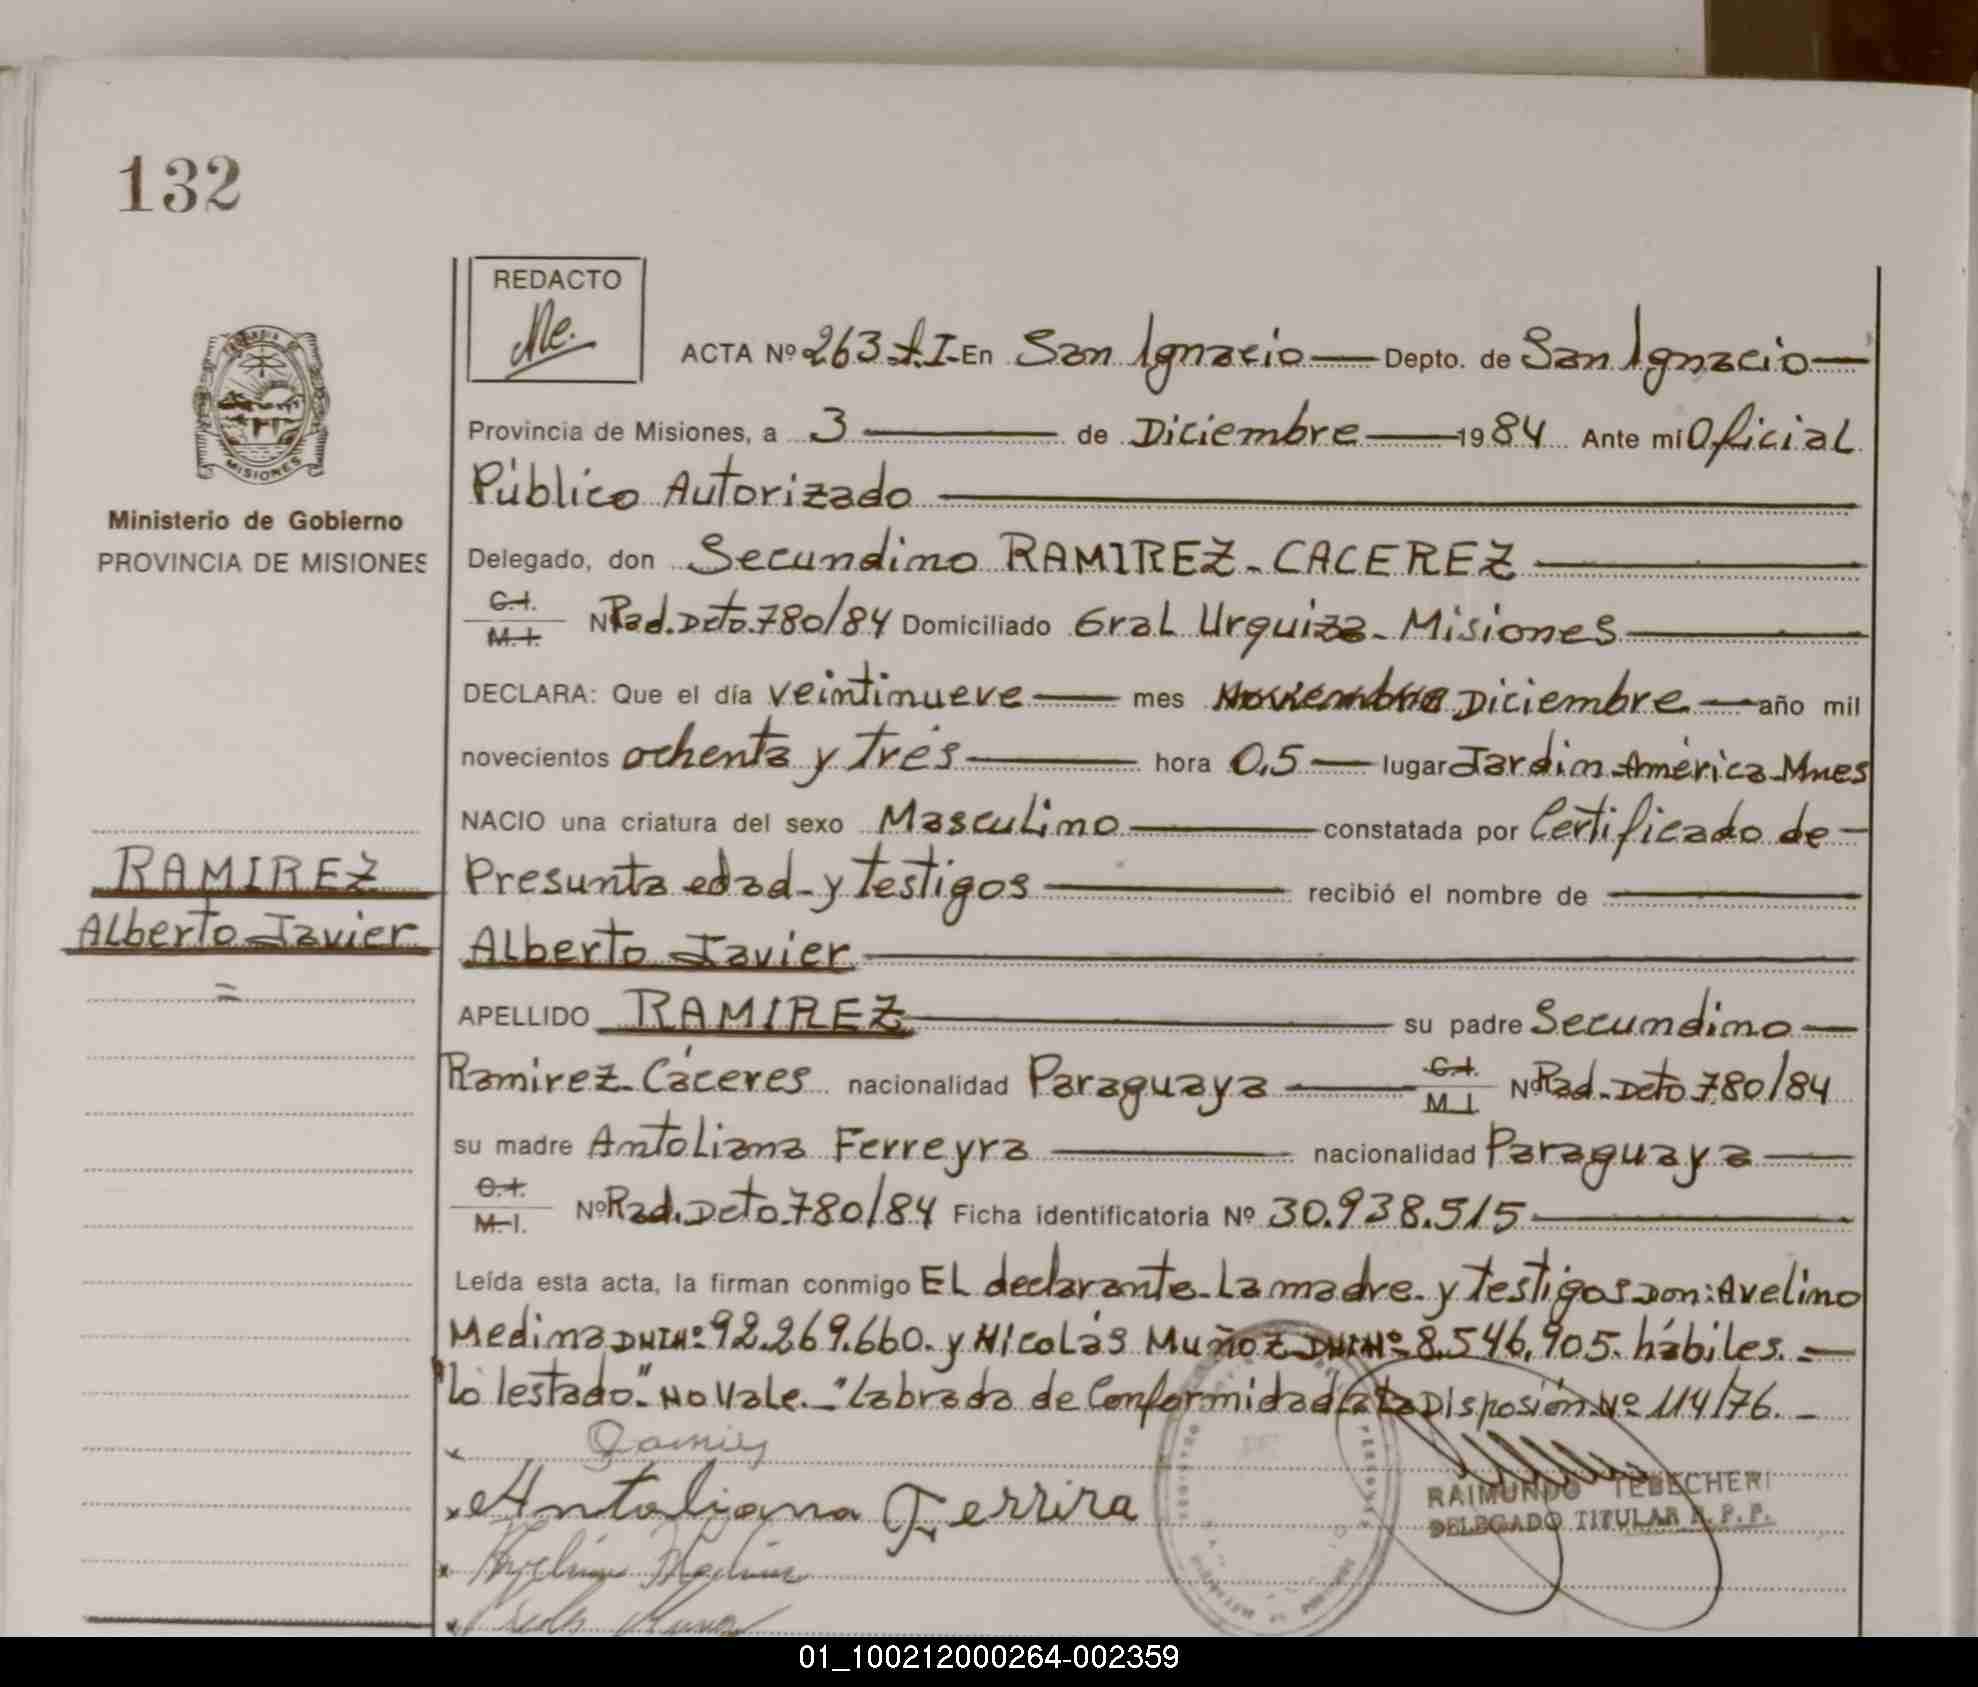 132
REDACTO
ACTA Nº 263 t.I En San Ignacio Depto. de San Ignacio
Provincia de Misiones, a 3 de Diciembre 1984 Ante mí Oficial
Público Autorizado
MISIONES
Ministerio de Gobierno
PROVINCIA DE MISIONES
Delegado, don Secundino RAMIREZ-CACEREZ
C.I.
M.I. Nº Rad. Dcto. 780/84 Domiciliado Gral Urquiza - Misiones
DECLARA: Que el día veintinueve mes Noviembre Diciembre año mil
novecientos ochenta y trés hora 0,5 lugar Jardin América Mnes
NACIO una criatura del sexo Masculino constatada por Certificado de
RAMIREZ
Presunta edad - y testigos recibió el nombre de
Alberto Javier
Alberto Javier
APELLIDO RAMIREZ su padre Secundino
Ramirez - Cáceres nacionalidad Paraguaya C.I. M.I. Nº Rad. Dcto 780/84
su madre Antoliana Ferreyra nacionalidad Paraguaya
C.I.
M.I. Nº Rad. Dcto. 780/84 Ficha identificatoria Nº 30.938.515
Leída esta acta, la firman conmigo EL declarante - La madre - y testigos Don: Avelino
Medina DNI Nº 92.269.660. y Nicolás Muñoz DNI Nº 8.546.905. hábiles. =
"lo testado" No Vale. - "Labrada de Conformidad a La Disposión Nº 114/76. -
Antoliana Ferrira
RAIMUNDO TEBECHERI
DELEGADO TITULAR R. P. P.
Avelino Medina
01_100212000264-002359